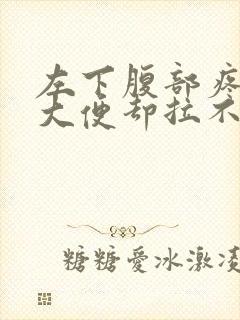 左下腹部疼
大便却拉不
糖糖愛冰激凌